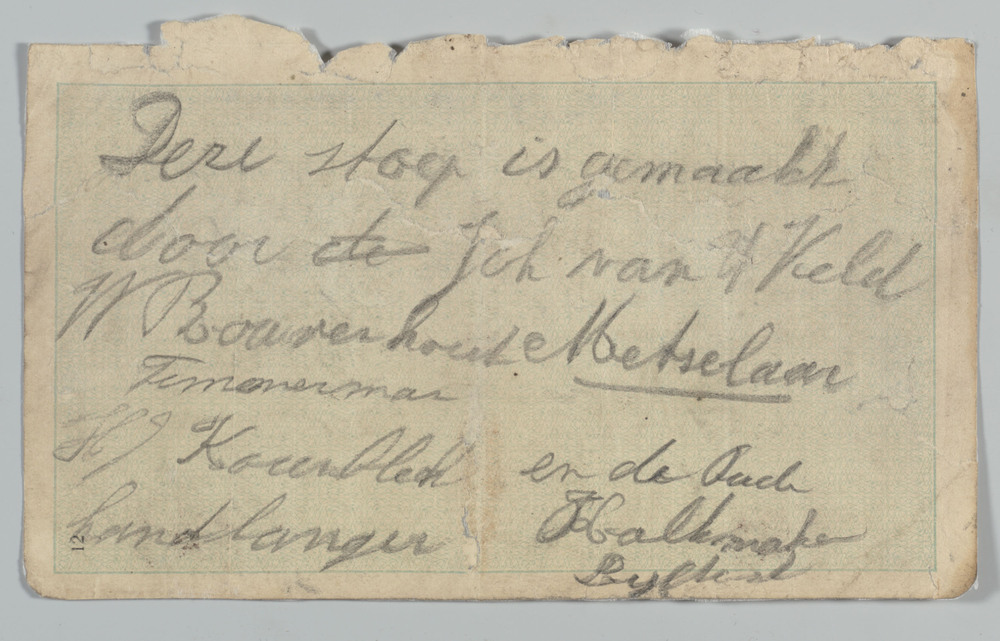 Deze stoep is gemaakt
door de Joh van 't Veld
W Bouwenhout Metselaar
Timmerman
HJ
en de Oude
handlanger
Kalkmaker
12